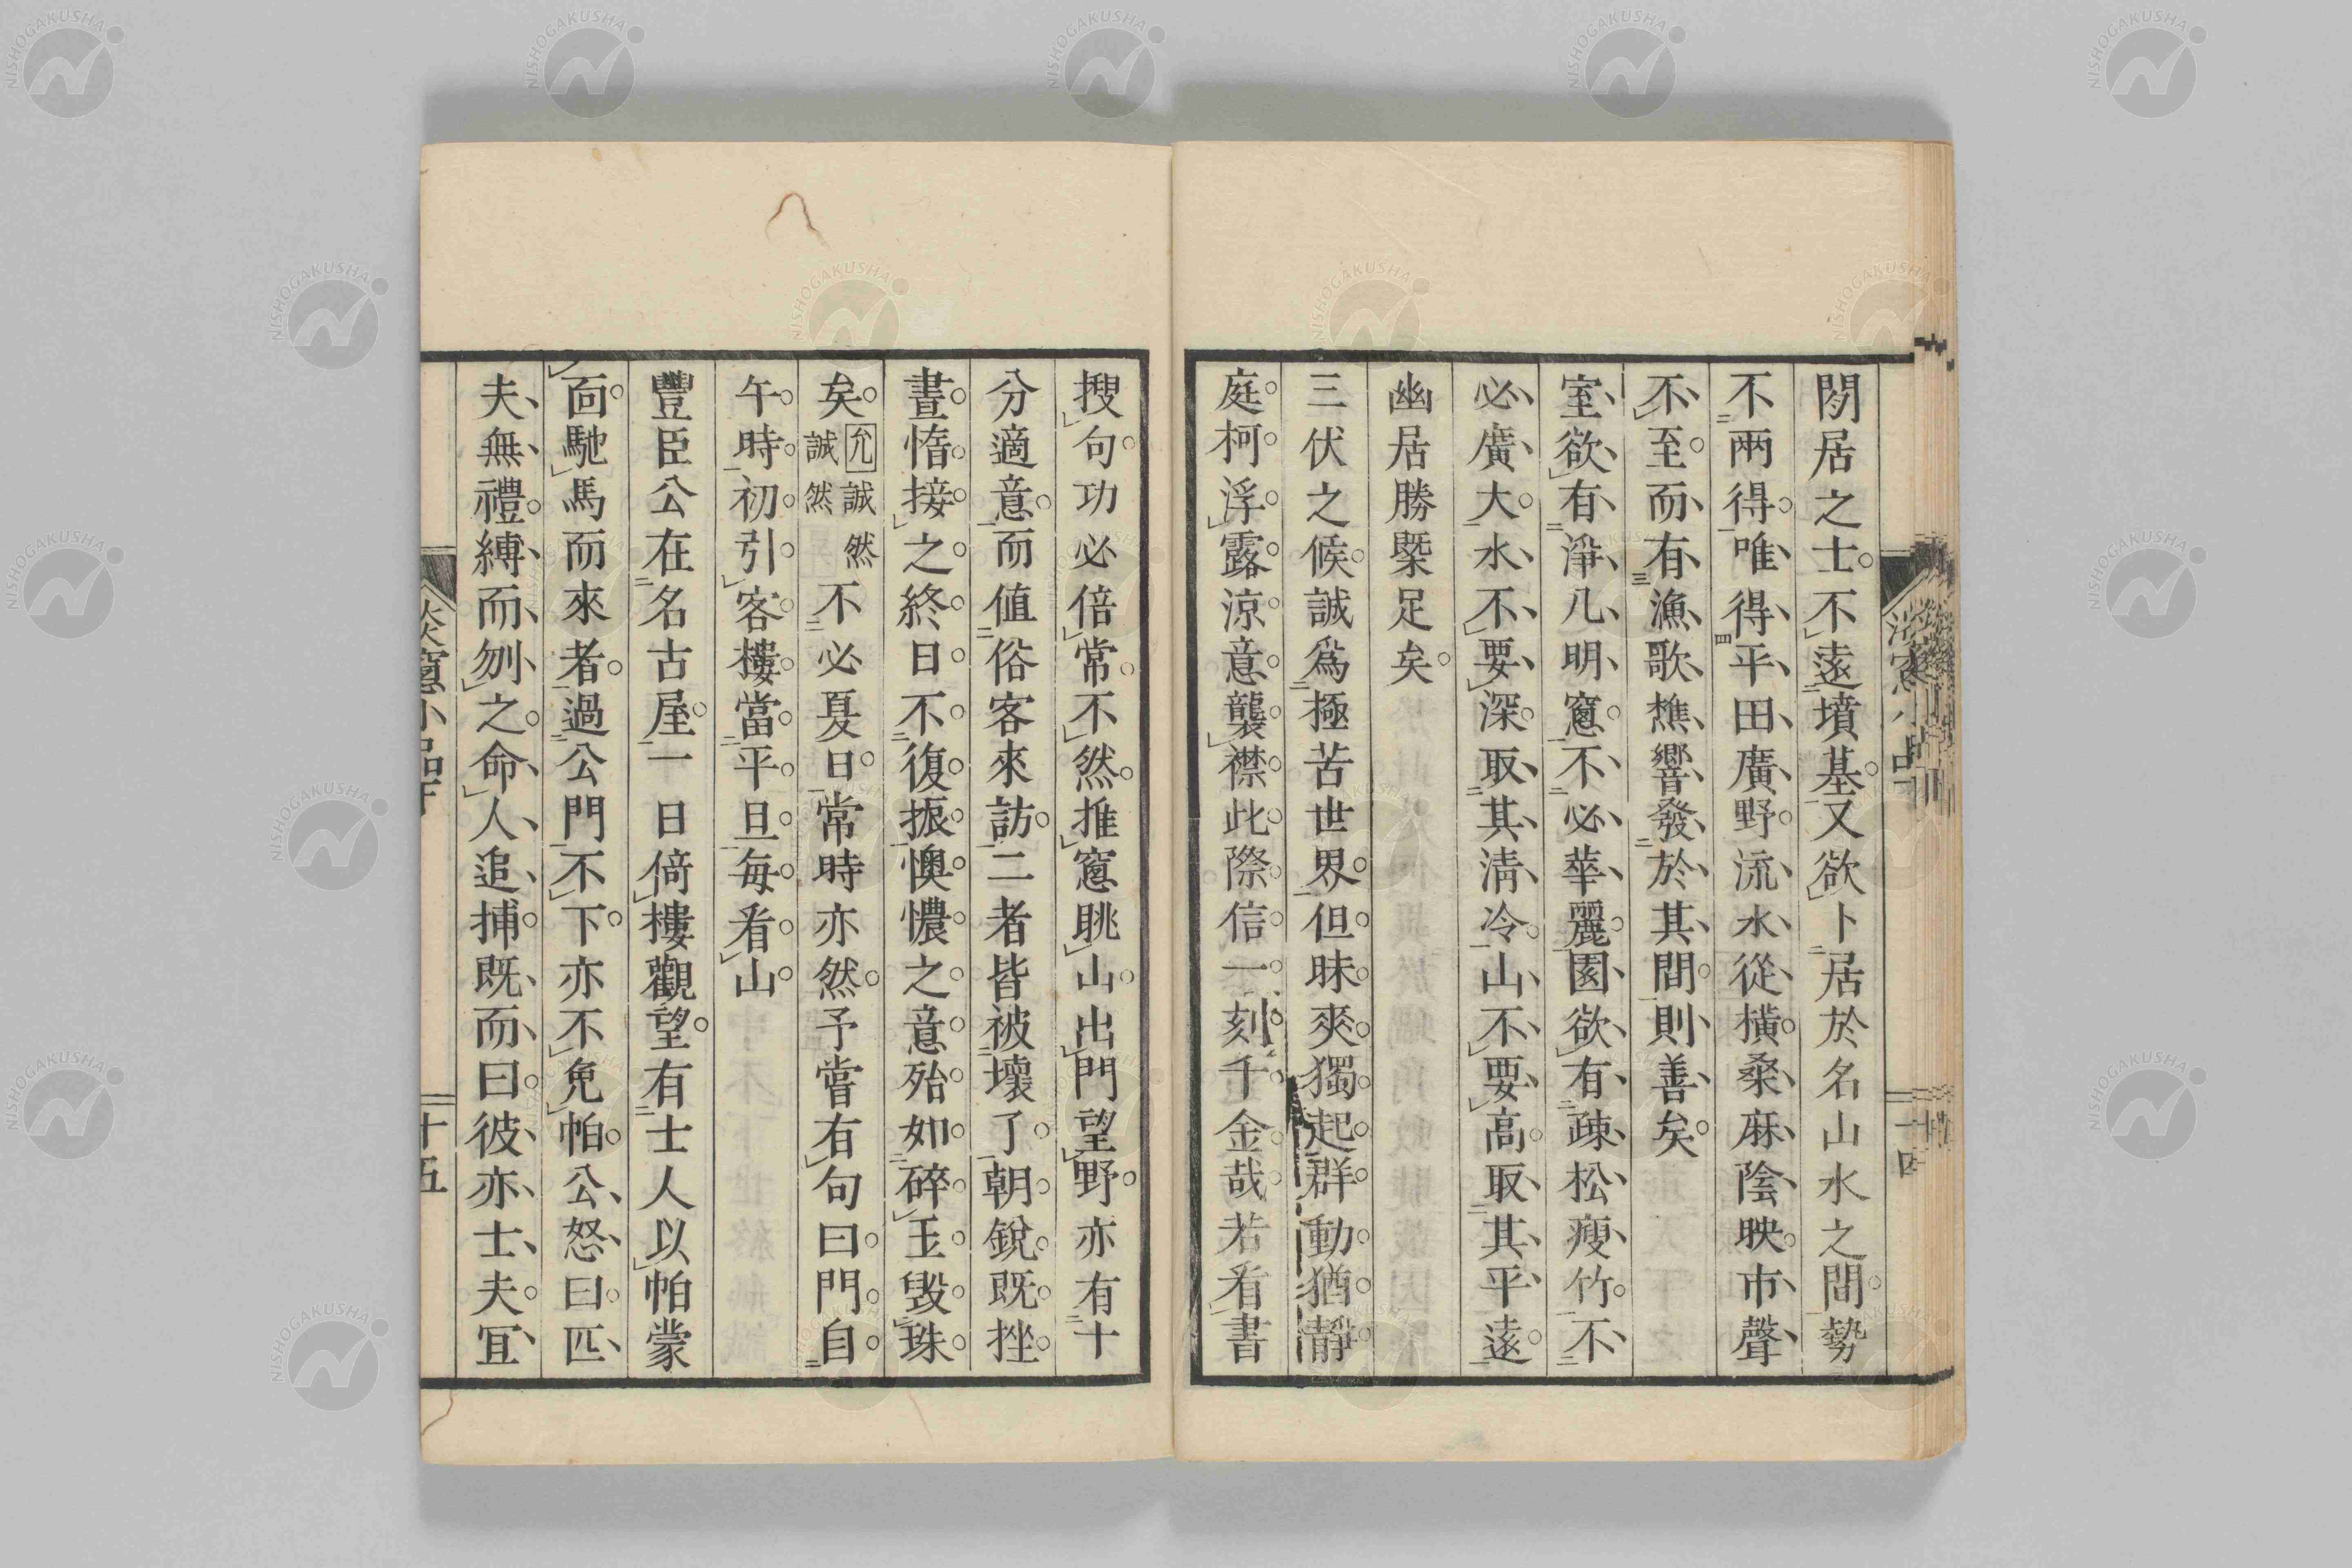 閒居之士不遠墳墓又欲卜居於名山水之間勢
不兩得唯得平田廣野流水從橫桑麻陰映市聲
不至而有漁歌樵響發於其間則善矣
室欲有淨几明窻不必華麗園欲有疎松瘦竹不
必廣大水不要深取其淸冷山不要高取其平遠
幽居勝槩足矣
三伏之候誠爲極苦世界但昧爽獨起群動猶靜
庭柯浮露涼意襲襟此際信一刻千金哉若看書
搜句功必倍常不然推窻眺山出門望野亦有十
分適意而値俗客來訪二者皆被壞了朝銳既挫
晝惰接之終日不復振懊憹之意殆如碎玉毀珠
矣允誠然誠然不必夏日常時亦然予嘗有句曰門自
午時初引客樓當平旦每看山
豐臣公在名古屋一日倚樓觀望有士人以帕蒙
面馳馬而來者過公門不下亦不免帕公怒曰匹
夫無禮縛而刎之命人追捕既而曰彼亦士夫宜
十五
NISHOGAKUSHA